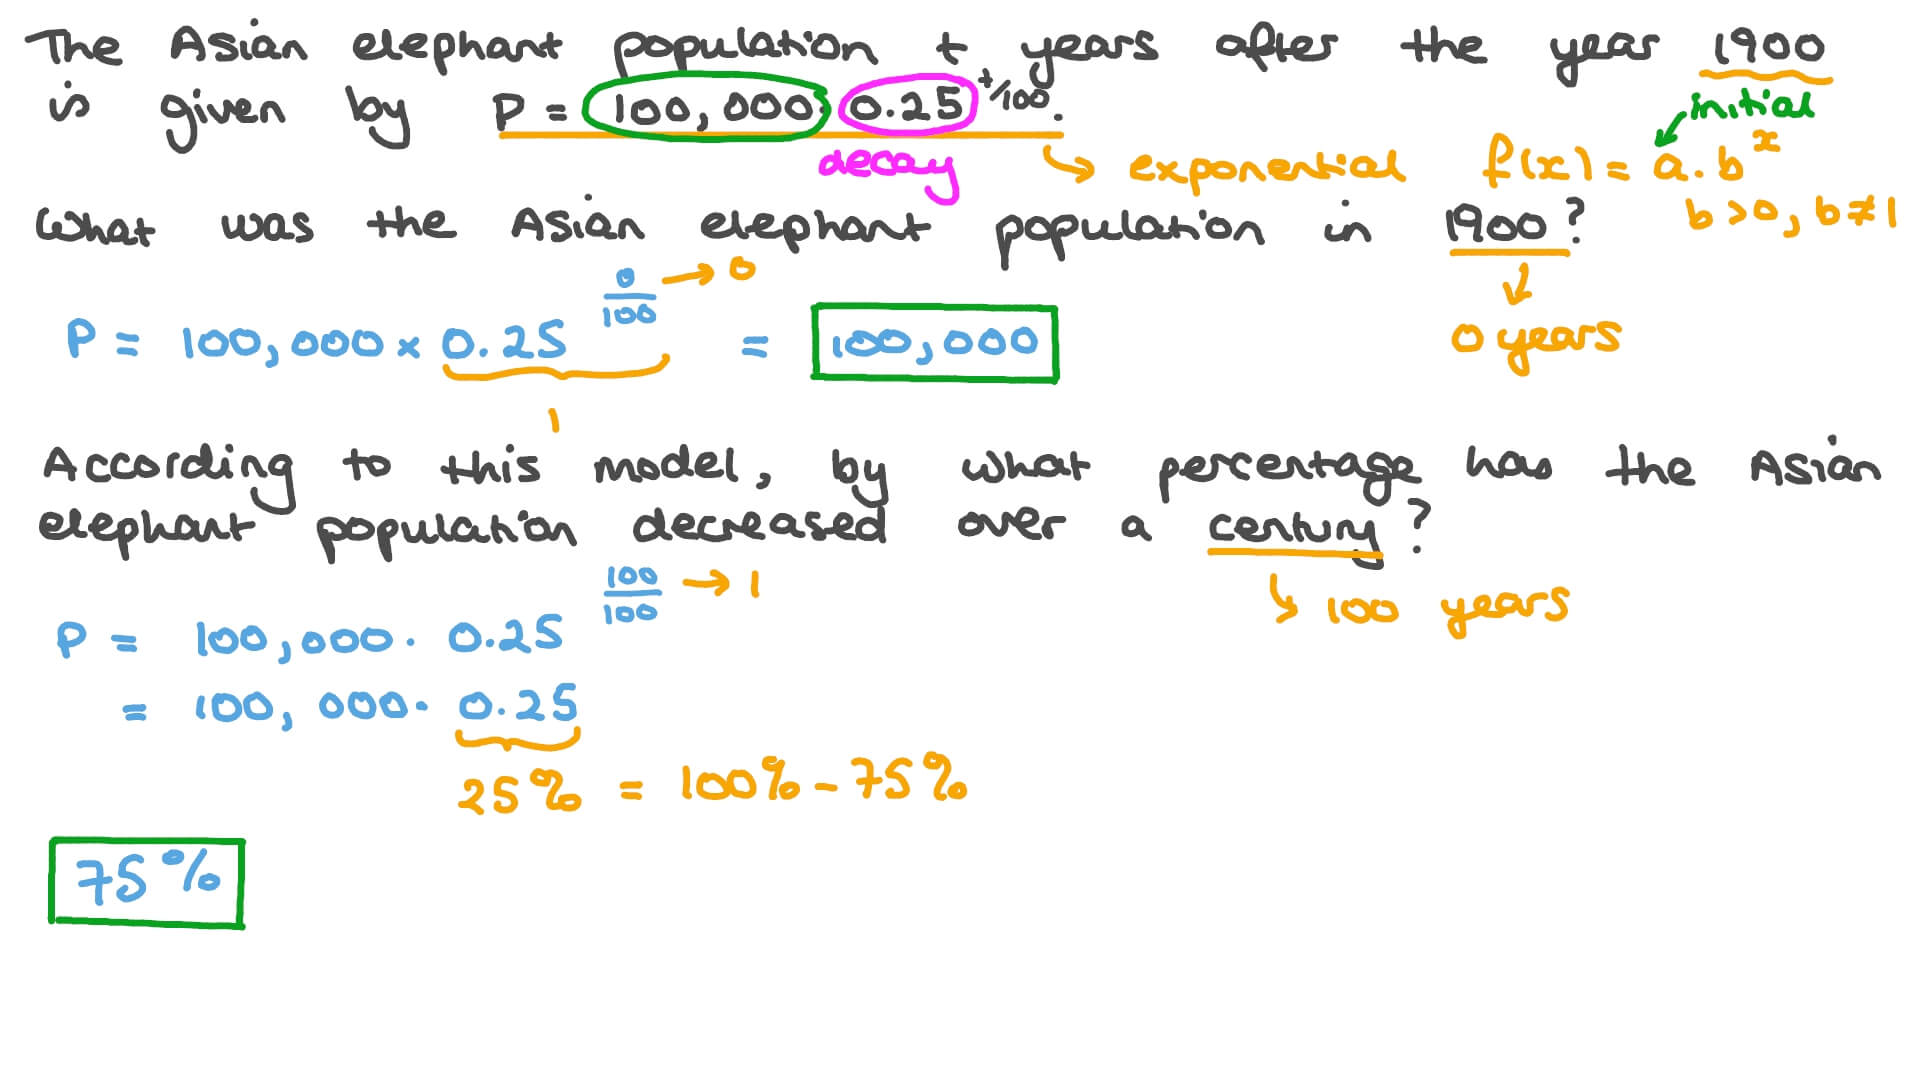 The Asian elephant population t years after the year 1900
is given by P = 100,000 · 0.25^t/100.
initial
decay
exponential f(x) = a.b^x
b>0, b≠1
What was the Asian elephant population in 1900?
P = 100,000 × 0.25^0/100 → 0 = 100,000
1
0 years
According to this model, by what percentage has the Asian
elephant population decreased over a century?
P = 100,000 · 0.25^100/100 → 1
100 years
= 100,000 · 0.25
25% = 100% - 75%
75%